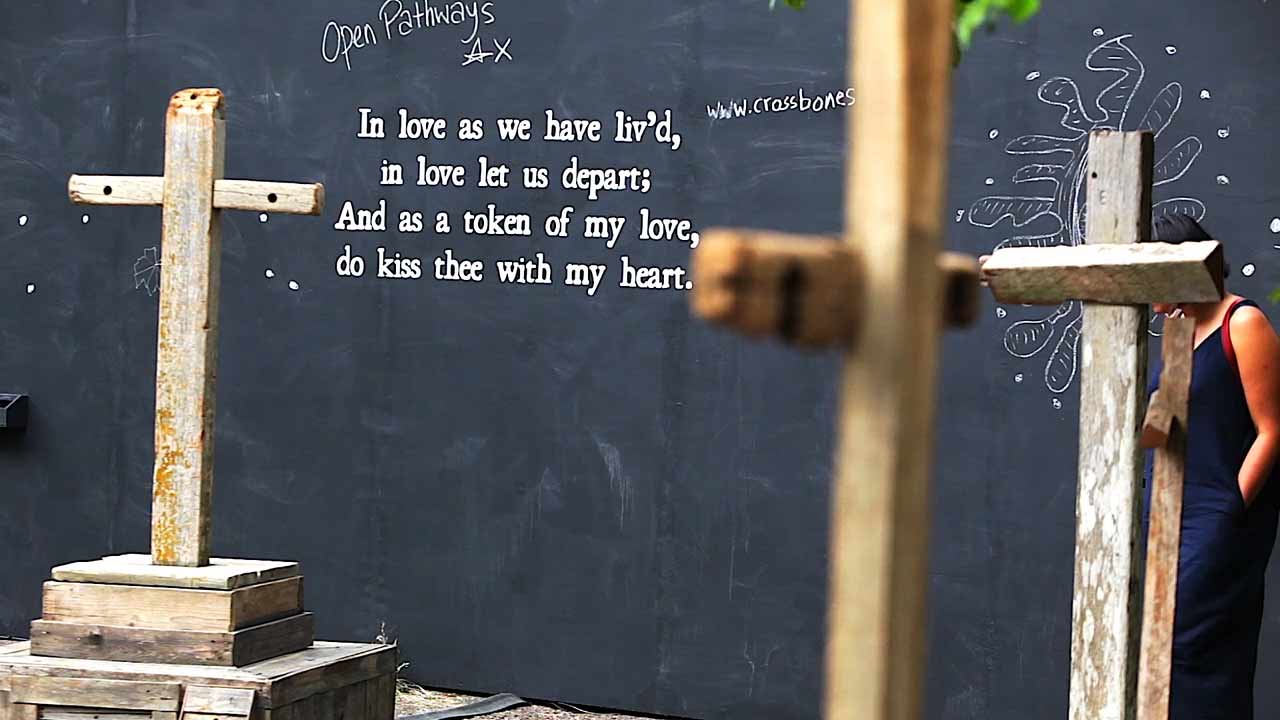 Open Pathways
AX
www.crossbones
In love as we have liv'd,
in love let us depart;
And as a token of my love,
do kiss thee with my heart.